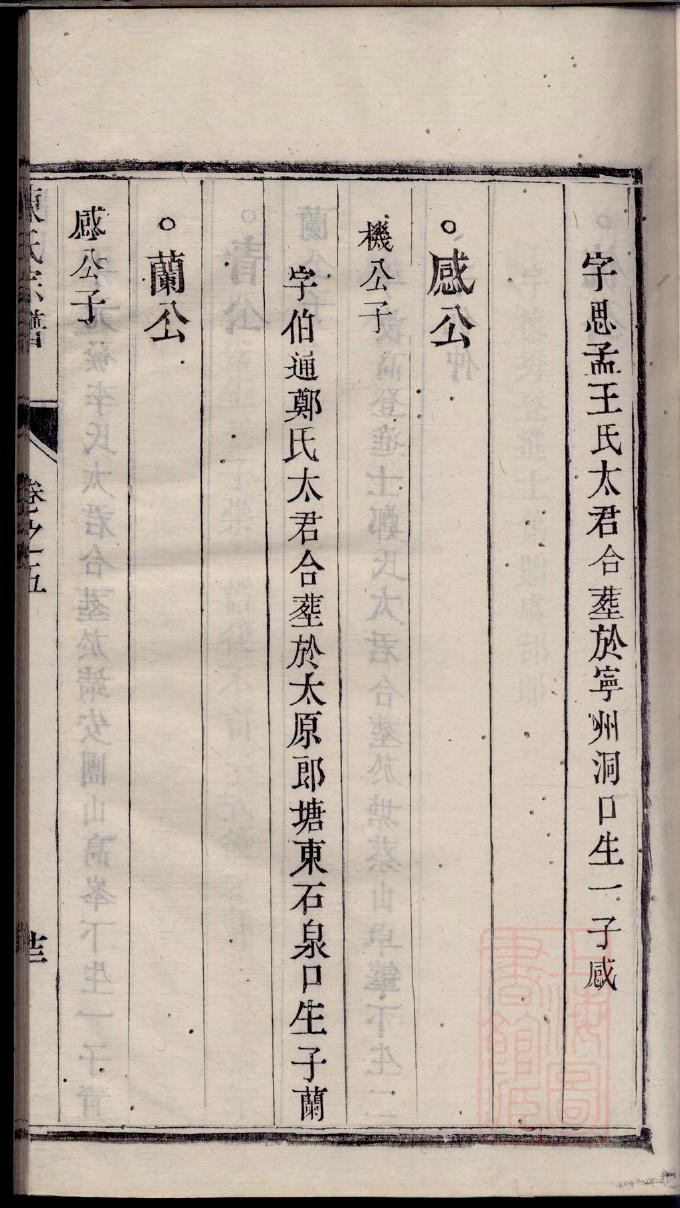 字思孟王氏太君合塟於寧州洞口生一子感
○感公
機公子
字伯通鄭氏太君合塟於太原郎塘東石泉口生子蘭
○蘭公
感公子
陳氏宗譜
卷之五
上海圖書館藏